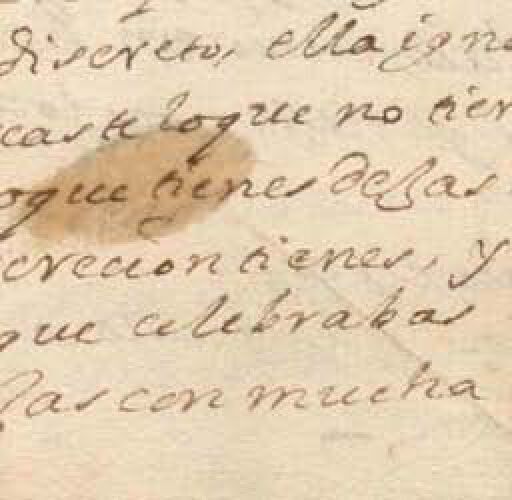 discreto, ella igno
caste loque no tien
oque tienes dexas
crecion tienes, y
que celebrabas
xas con mucha